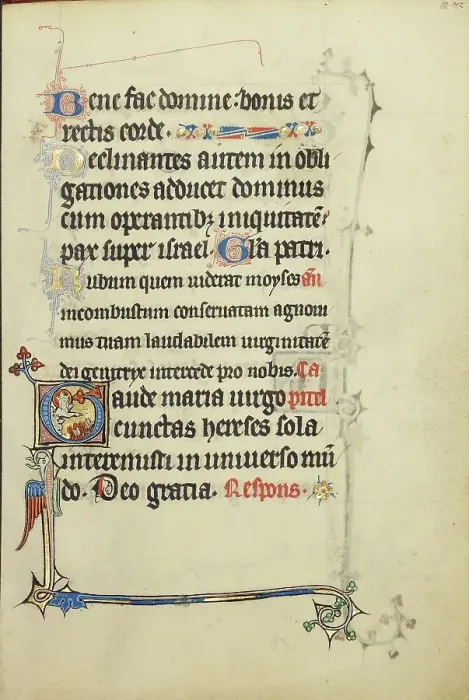 Bene fac domine: bonis et
rectis corde.
Declinantes autem in obli
gationes adducet dominus
cum operantibꝫ iniquitatē:
pax super israel. Gl̄a patri.
Rubum quem uiderat moyses an̄
incombustum conseruatam agnoui
mus tuam laudabilem uirginitatē
dei genitryx intercede pro nobis. Ca
Gaude maria uirgo pitel
cunctas hereses sola
interemisti in uniuerso mū
do. Deo gracia. Respons.